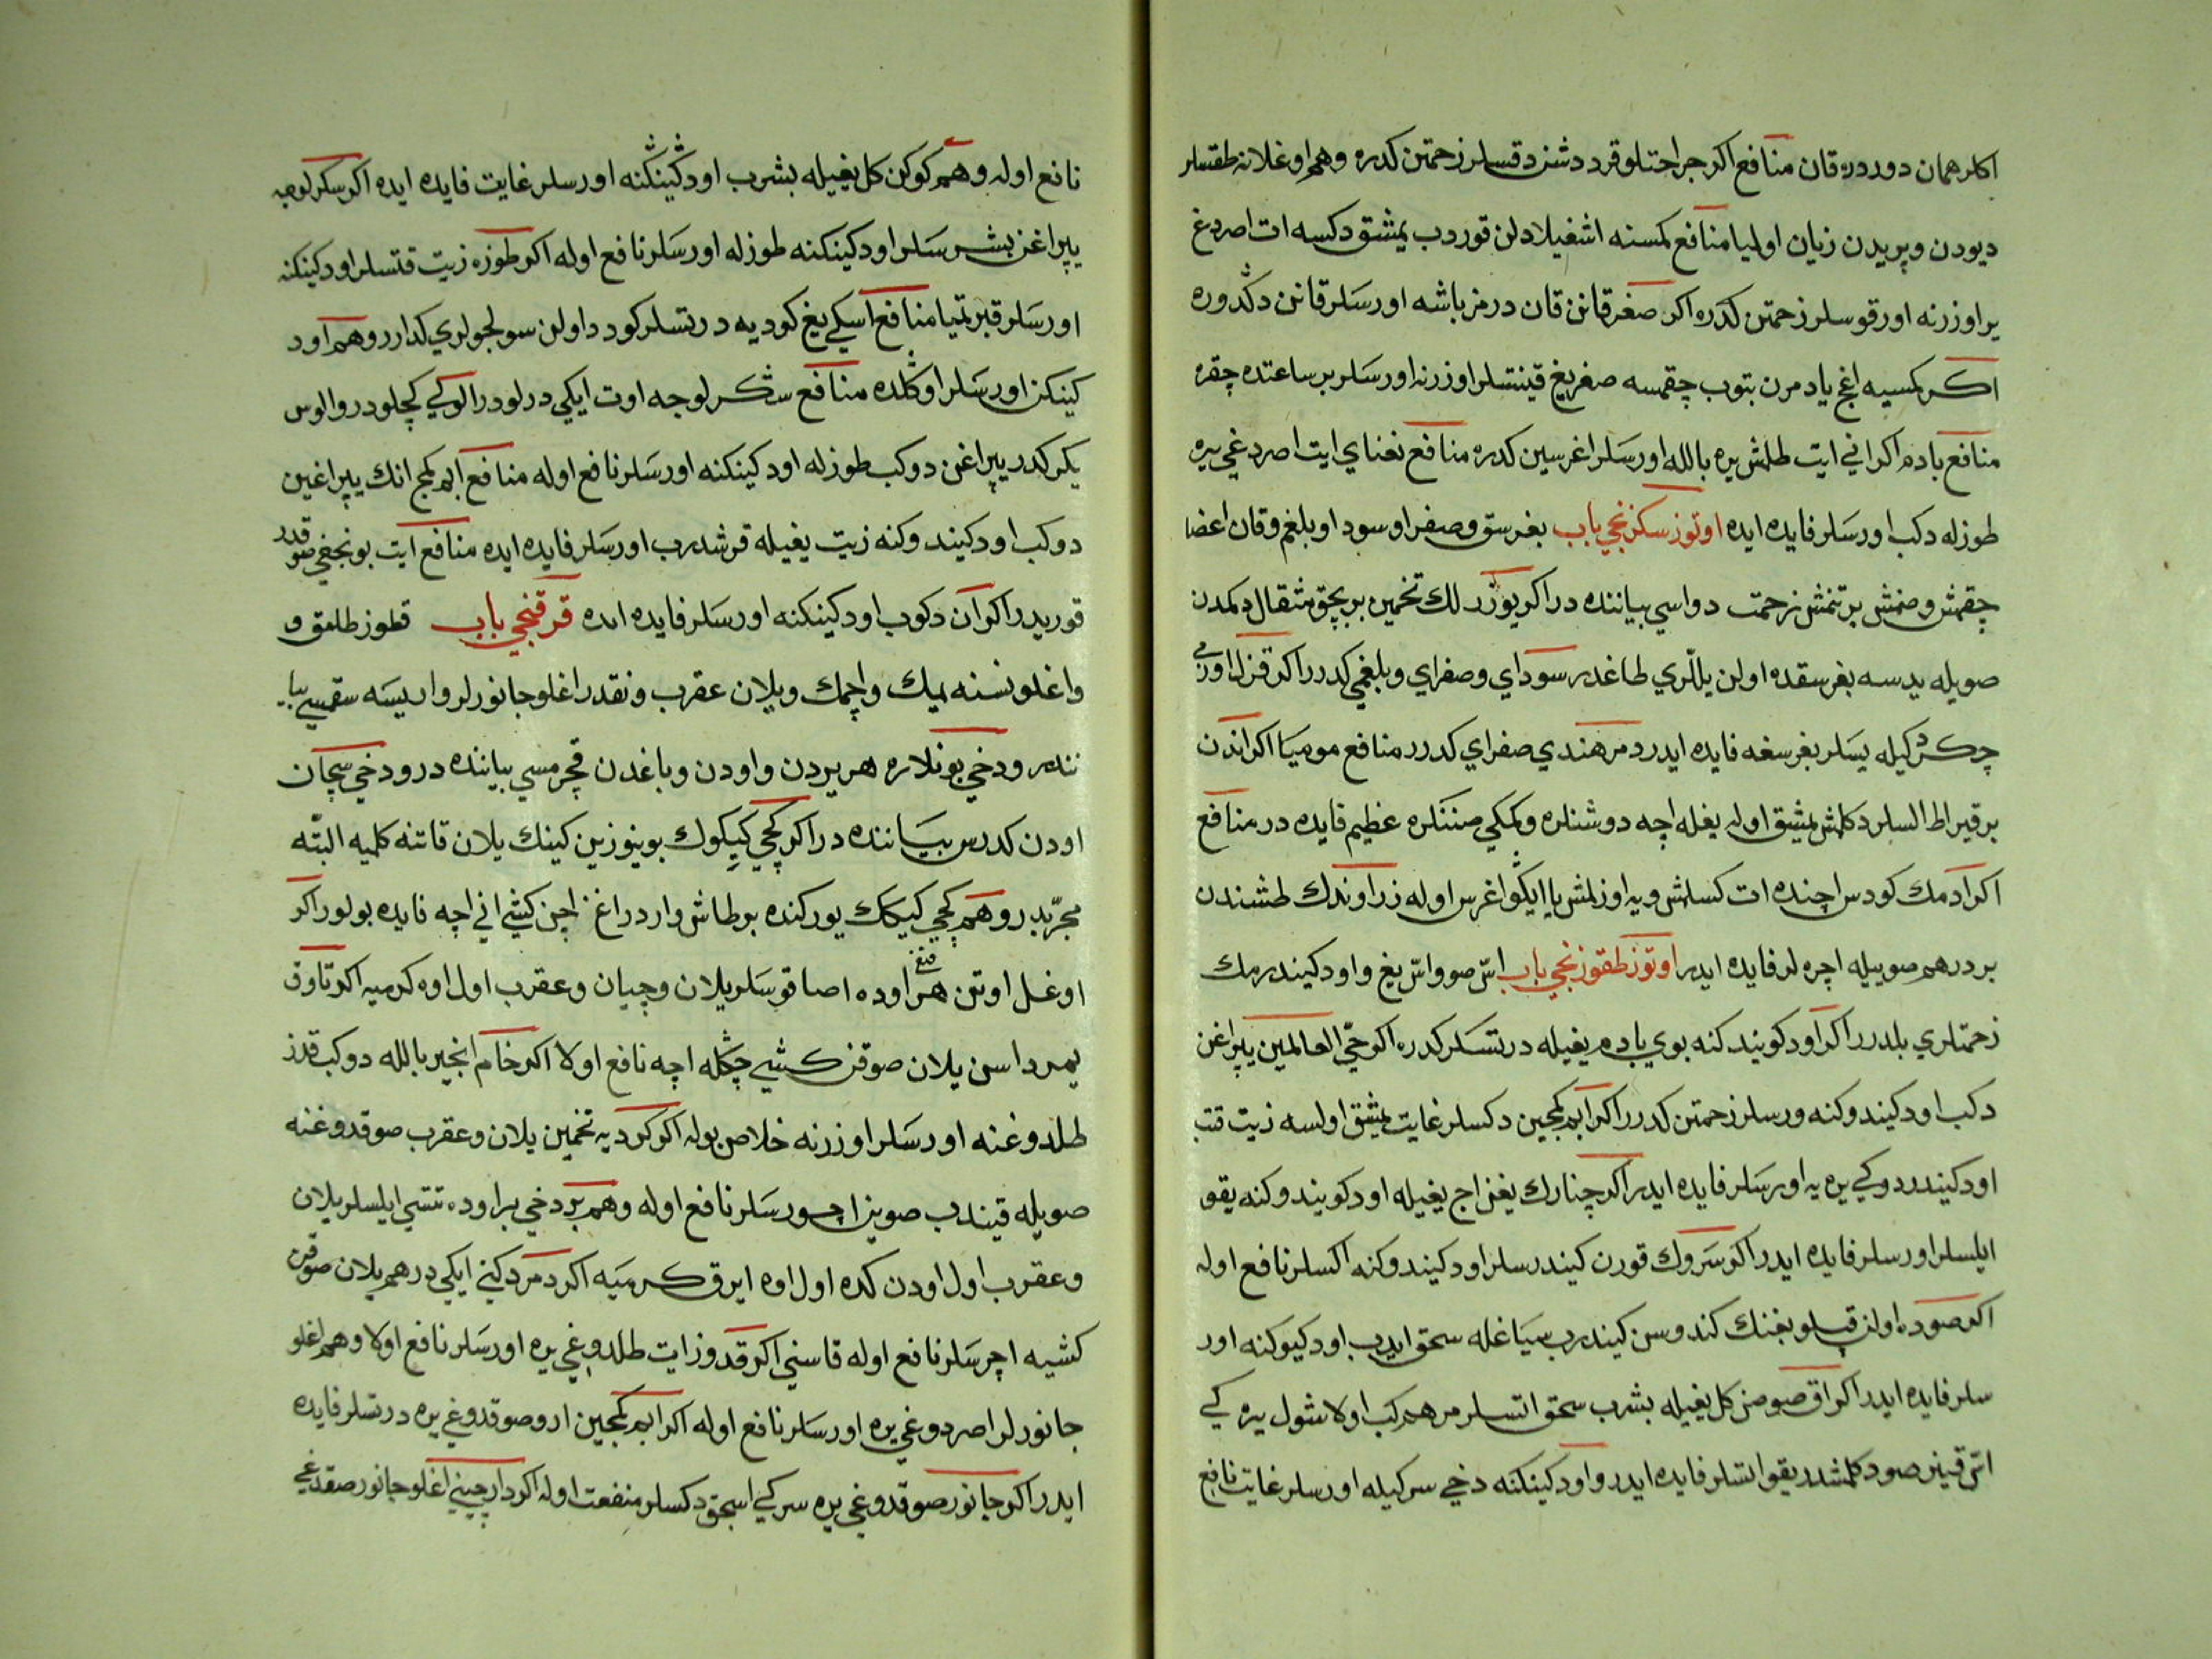 اكلر همان دوردره قان منافع اكر جراحتلو قرد دشنز دقسلر زحمتن كدره وهم اوغلانه طقسلر
ديودن وپريدن زيان اوليا منافع كمسنه اشغيلادلن قوردب يمشق دكسه ات اصردغ
ير اوزرنه اورقوسلر زحمتن كدره اكر صغر قانن قان درمز باشه اورسلر قانن دكدوره
اكر كمسيه اغج يادمرن بتوب چقمسه صغر يغ قينتسلر اوزرنه اورسلر بر ساعتده چقره
منافع بادم اكر اني ايت طلمش يره بالله اورسلر اغرسين كدره منافع نعناي ايت اصردغي يره
طوزله دكب اورسلر فايده ايده اوتوز سكزنجي باب بغرسق وصفرا وسودا وبلغم وقان اعضا
چقمش وصنمش برتنمش زحمت دواسي بياننده در اكر يوزر لك تخمين بر بچق مثقال دلمدن
صويله يدسه بغرسقده اولن يللري طاغدر سوداي وصفراي وبلغمي كدرر اكر قزل اوزمي
چكردكيله يسلر بغرسغه فايده ايدر دمر هندي صفراي كدرر منافع موميا اكر اندن
بر قيراط السلر دكلمش يمشق اوله يغله اچه دوشنلره وكمكي صننلره عظيم فايده در منافع
اكر ادمك كودس اچنده ات كسلمش ويه اوزلمش يا ايكو اغرس اوله زراوندك طشندن
بر درهم صوييله اچره لر فايده ايدر اوتوز طقوزنجي باب اس صو واس يغ واود كيندرمك
زحمتلري بلدرر اكر اود كويندكنه بوي بادم يغيله درتسلر كدره اكر حي العالمين يپراغن
دكب اود كيندوكنه ورسلر زحمتن كدرر اكر ابم كمجين دكسلر غايت يمشق اولسه زيت قتب
اود كيندردوكي يره يه اورسلر فايده ايدر اكر چنارك يغز اج يغيله اود كويندوكنه يقو
ايلسلر اورسلر فايده ايدر اكر سروك قورن كيندرسلر اود كيندوكنه اكسلر نافع اوله
اكر صوده اولن قپلو بغنك كندوسن كيندرب سيا غله سحق ايدب اود كيوكنه اور
سلر فايده ايدر اكر اق صوصن كل يغيله بشرب سحق اتسلر مرهم كب اولا شول يره كي
اس قينر صو دكلمشدر يقو اتسلر فايده ايدر واود كينكنه دخي سركيله اورسلر غايت نافع
نافع اوله وهم كوكن كل يغيله بشرب اود كينكنه اورسلر غايت فايده ايده اكر سكرلوجه
يپراغن بشرسلر اود كينكنه طوزله اورسلر نافع اوله اكر طوزه زيت قتسلر اود كينكنه
اورسلر قبرتميا منافع اسكي يغ كوديه درتسلر كودد اولن سولجولري كدارر وهم اود
كينكن اورسلر اوكلده منافع سكرلوجه اوت ايكي درلودر الوكي كچلودر والوس
يكركدر يپراغن دوكب طوزله اود كينكنه اورسلر نافع اوله منافع ابم كمج انك يپراغين
دوكب اود كيندوكنه زيت يغيله قرشدرب اورسلر فايده ايده منافع ايت بونجغي صو قدر
قوريدر اكر ان دكوب اود كينكنه اورسلر فايده ايده قرقنجي باب قطوز طلمق و
واغلو نسنه يمك واچمك ويلان عقرب ونقدر اغلو جانورلر واريسه سقمسي بيا
ننده ودخي بونلاره هر يردن واودن وباغدن قچرمسي بياننده در ودخي سچان
اودن كدرس بياننده در اكر كچي كيكوك بوينوزين كينك يلان قاتنه كلميه البته
مجربدر وهم كچي كيكك يوركنده بر طاش واردر اغز اچن كيشي اني اچه فايده بولور اكر
اوغل اوتن قنغي هر اوده اصا قوسلر يلان وچيان وعقرب اول اوه كرميه اكر تاوق
يمرداسن يلان صوقن كشي چكله اچه نافع اولا اكر خام انجير بالله دوكب قدز
طلدوغنه اورسلر اوزرنه خلاص بوله اكر كرديه تخمين يلان وعقرب صوقدوغنه
صويله قيندب صوين اچورسلر نافع اوله وهم بر دخي بر اوده تتسي ايلسلر يلان
وعقرب اول اودن كده اول اوه ايرق كرميه اكر دمر دكني ايكي درهم يلان صوقن
كشيه اچرسلر نافع اوله قاسني اكر قدوز ايت طلدوغي يره اورسلر نافع اولا وهم اغلو
جانورلر اصردوغي يره اورسلر نافع اوله اكر ابم كمجين ارو صوقدوغي يره درتسلر فايده
ايدر اكر جانور صوقدوغي يره سركي اسجق دكسلر منفعت اوله اكر دارچيني اغلو جانور صقدغي